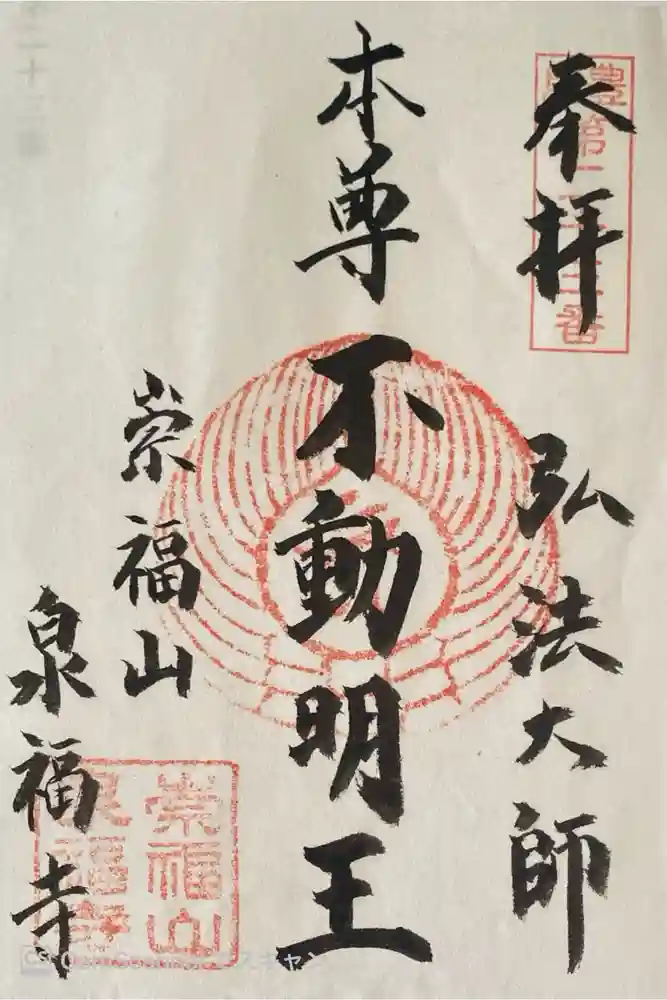 奉拝
豊第二十三番
弘法大師
本尊
不動明王
崇福山
泉福寺
崇福山
泉福寺